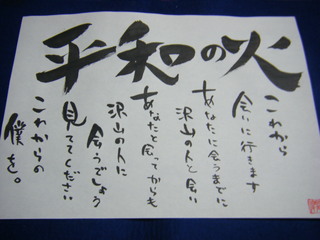 平和の火
これから
会いに行きます
あなたに会うまでに
沢山の人と会い
あなたと会ってからも
沢山の人に
会うでしょう
見ててください
これからの
僕を。